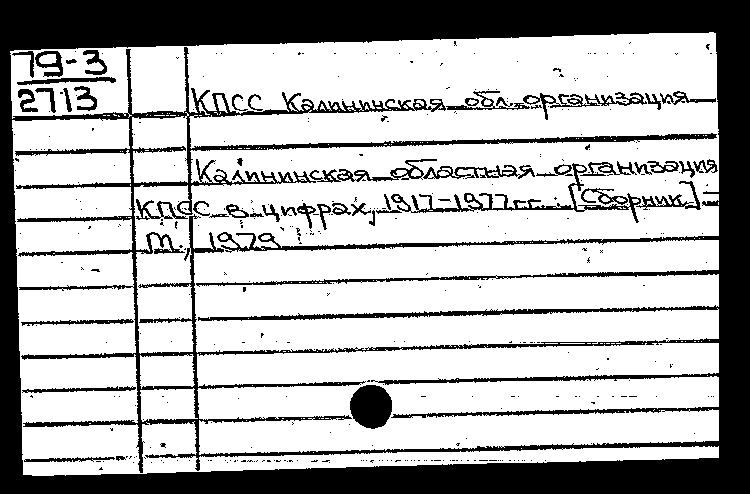 79-3
2713
КПСС Калининская обл. организация
Калининская областная организация
КПСС в цифрах, 1917-1977 гг. : [Сборник] –
М., 1979